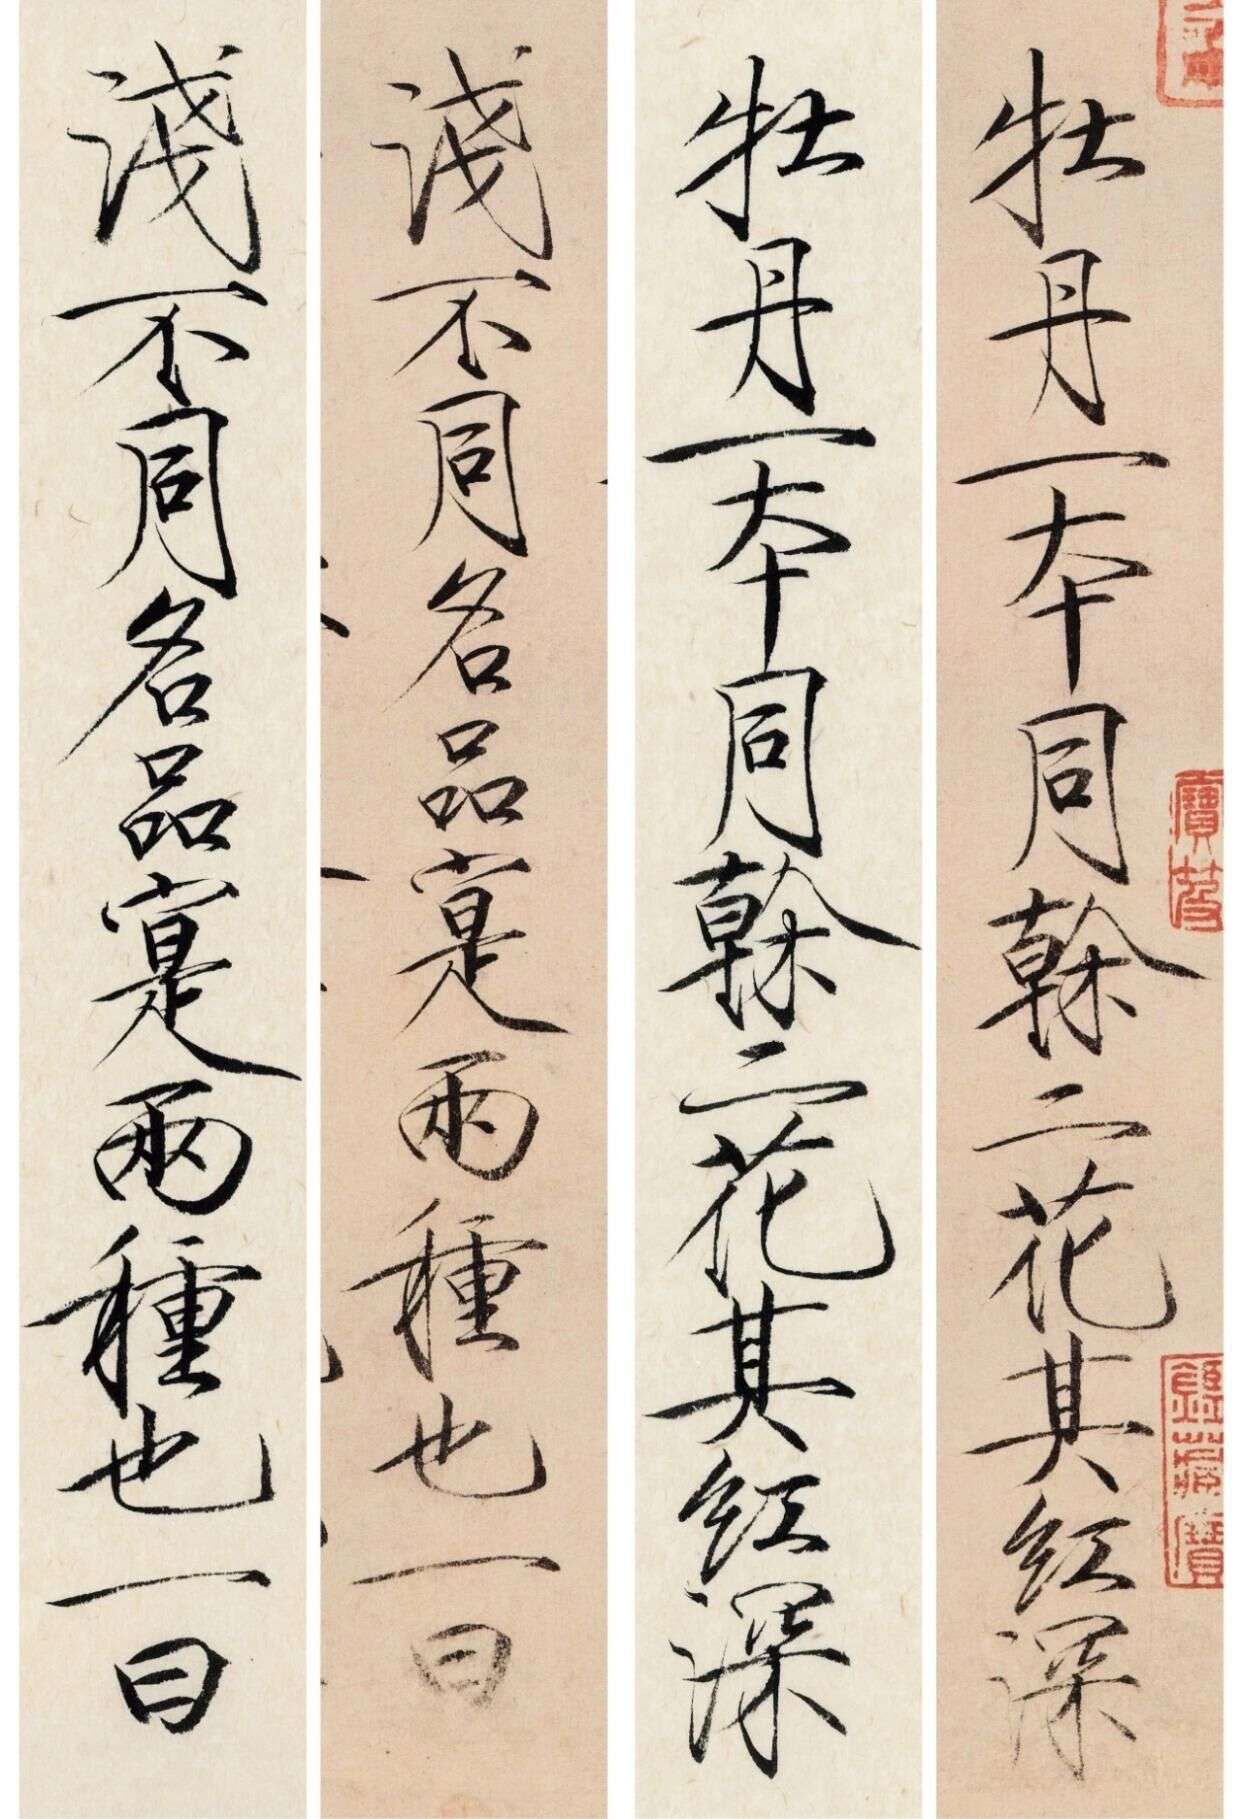 牡丹一本同榦二花其紅深
牡丹一本同榦二花其紅深
淺不同名品寔兩種也一曰
淺不同名品寔兩種也一曰